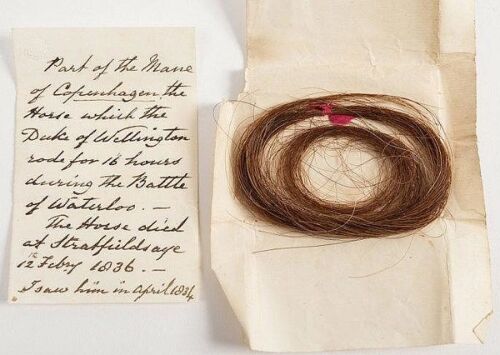 Part of the Mane
of Copenhagen the
Horse which the
Duke of Wellington
rode for 16 hours
during the Battle
of Waterloo. —
The Horse died
at Strathfieldsaye
12 Feby 1836. —
I saw him in April 1834